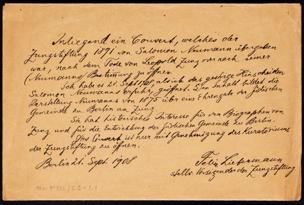 Inliegend ein Couvert, welches der
Zunzstiftung 1891 von Salomon Neumann übergeben
war, nach dem Tode von Leopold Zunz nach seiner
(Neumanns) Bestattung zu öffnen.
Ich habe es 21 Sept. als ich das gestrige Hinscheiden
Salomon Neumanns erfuhr, geöffnet. Der Inhalt bildet die
Darstellung Neumanns von 1875 über ein Ehrengeschenk der jüdischen
Gemeinde zu Berlin an Zunz
Er hat historisches Interesse für den Biographen von
Zunz und für die Entwicklung der jüdischen Gemeinde zu Berlin.
Das Couvert ist hier mit Genehmigung des Kuratoriums
der Zunzstiftung zu öffnen.
Berlin 21. Sept 1908
Felix Liebermann
stellv. Vorsitzender der Zunzstiftung